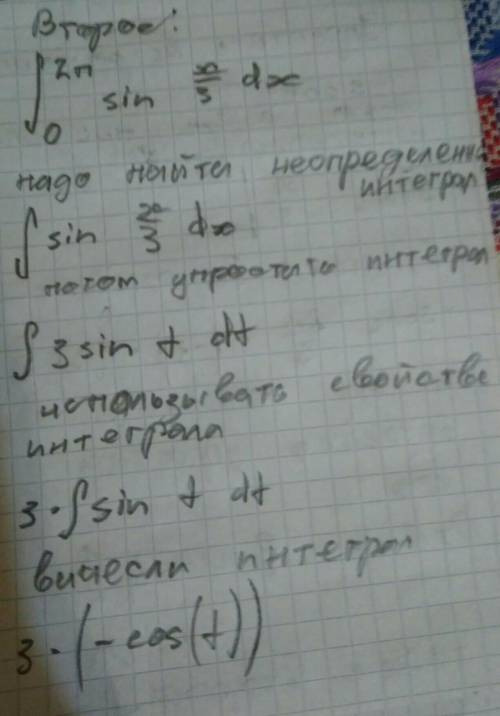 Второе:
∫₀²ᴨ sin x/3 dx
надо найти неопределенн
интеграл
∫ sin x/3 dx
потом упростить интеграл
∫ 3 sin t dt
использывать свойстве
интеграла
3 · ∫ sin t dt
вичесли интеграл
3 · (-cos(t))